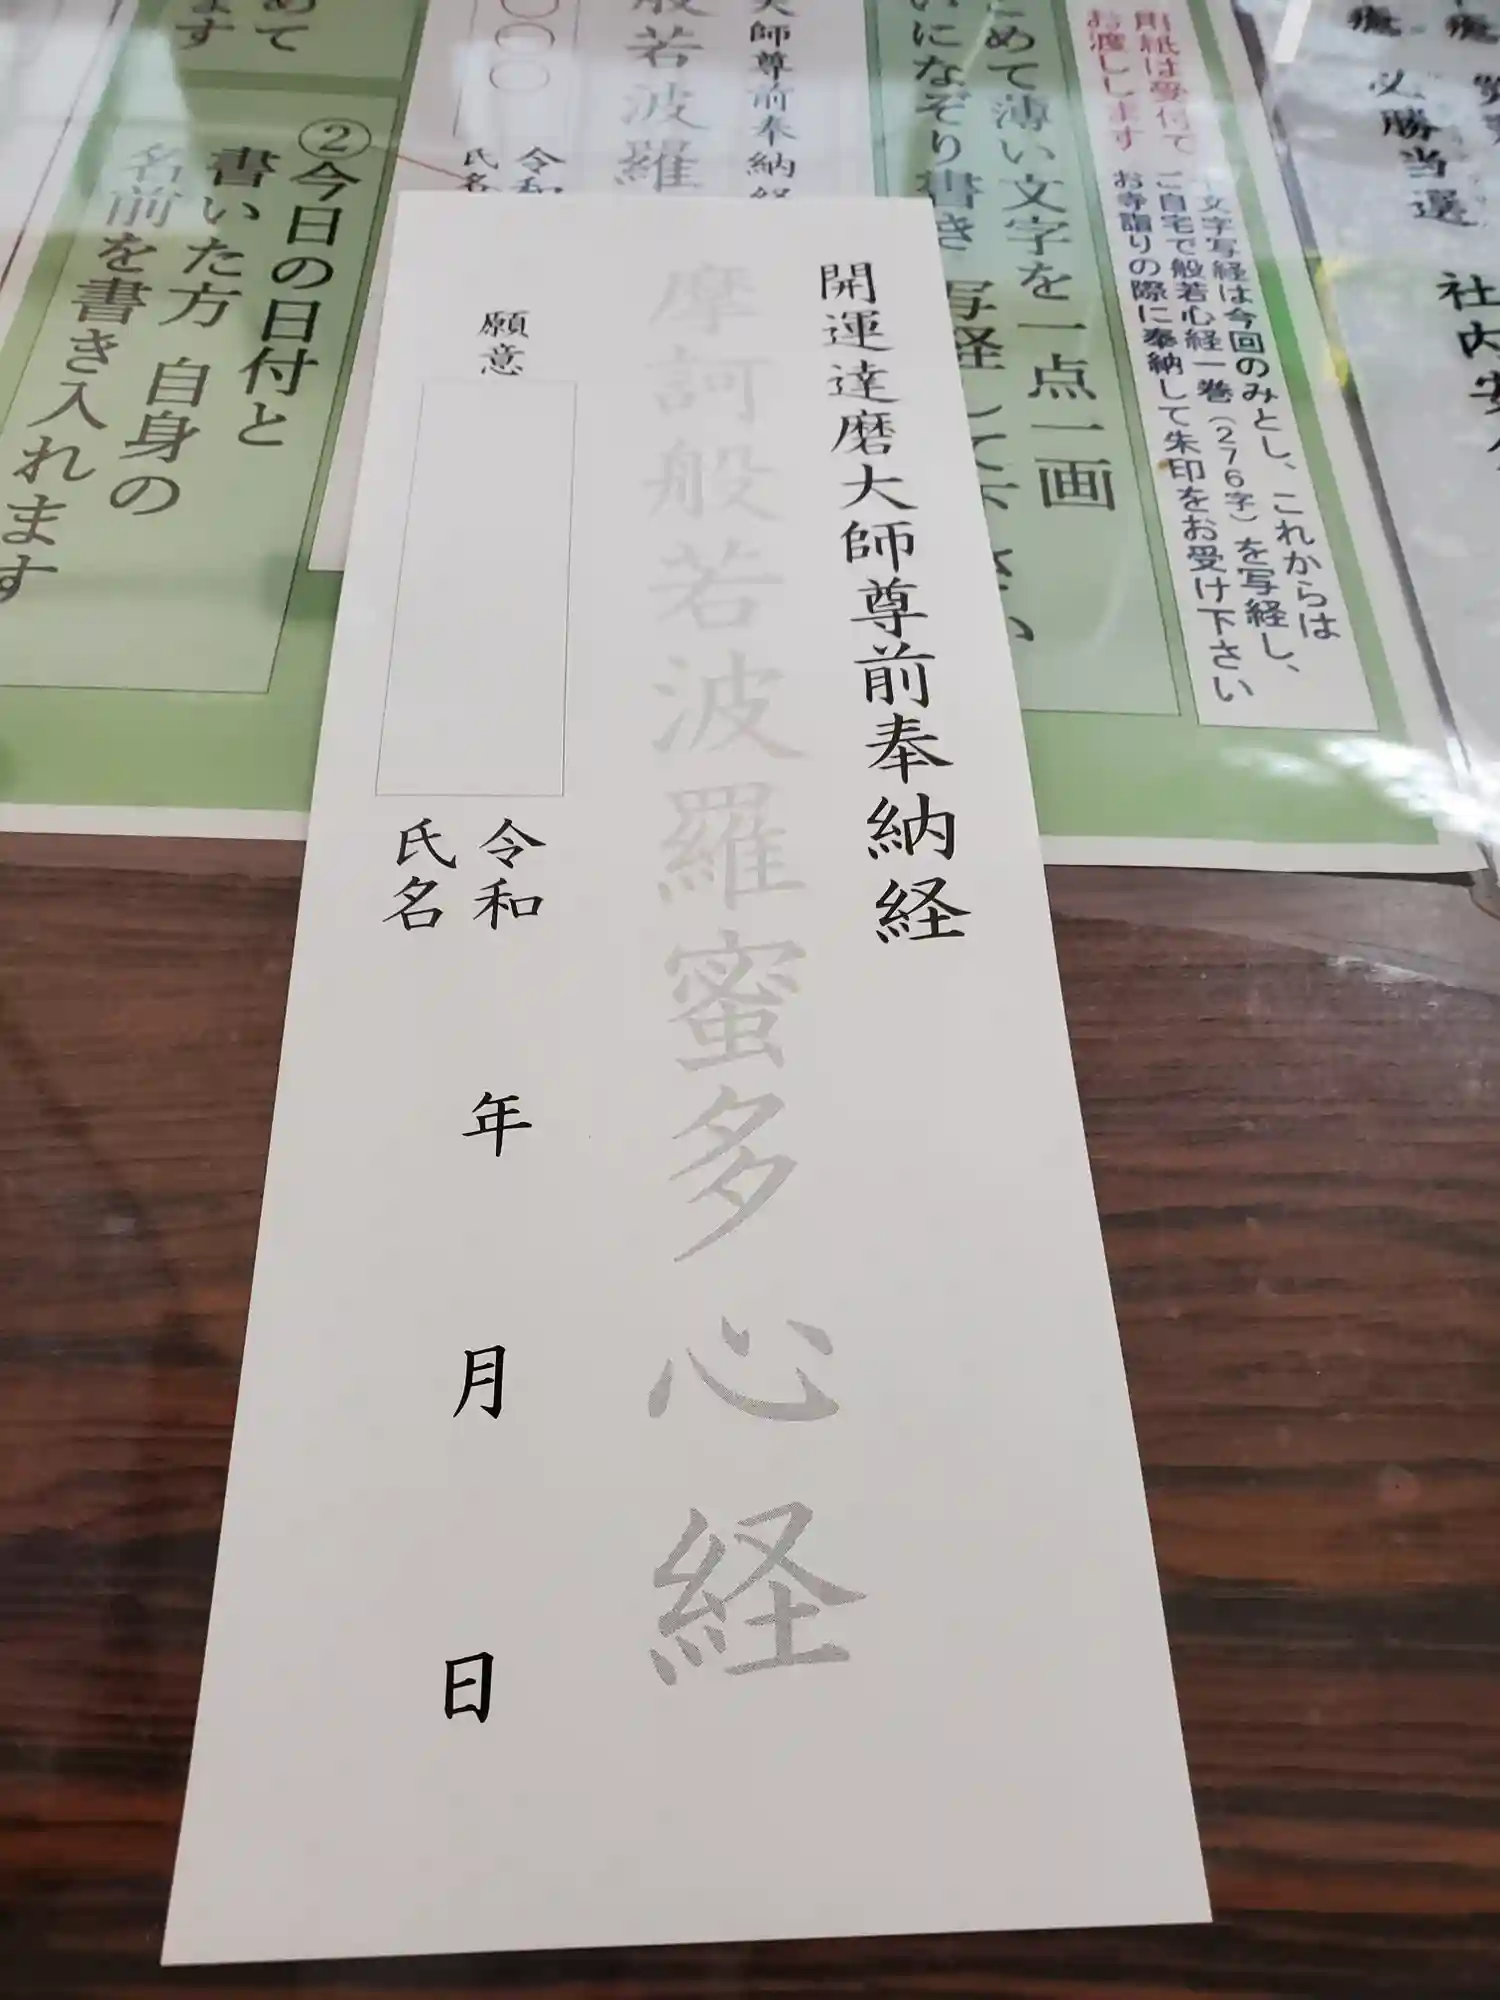 開運達磨大師尊前奉納経
摩訶般若波羅蜜多心経
願意
令和 年 月 日
氏名
必勝当選
社内安
お渡しします
文字写経は今回のみとし、これからは
ご自宅で般若心経一巻(276字)を写経し、
お寺詣りの際に奉納して朱印をお受け下さい
こめて薄い文字を一点一画
いになぞり書き 写経して下さい
大師尊前奉納経
般若波羅
令和
氏名
〇〇〇
②今日の日付と
書いた方 自身の
名前を書き入れます
めて
ます